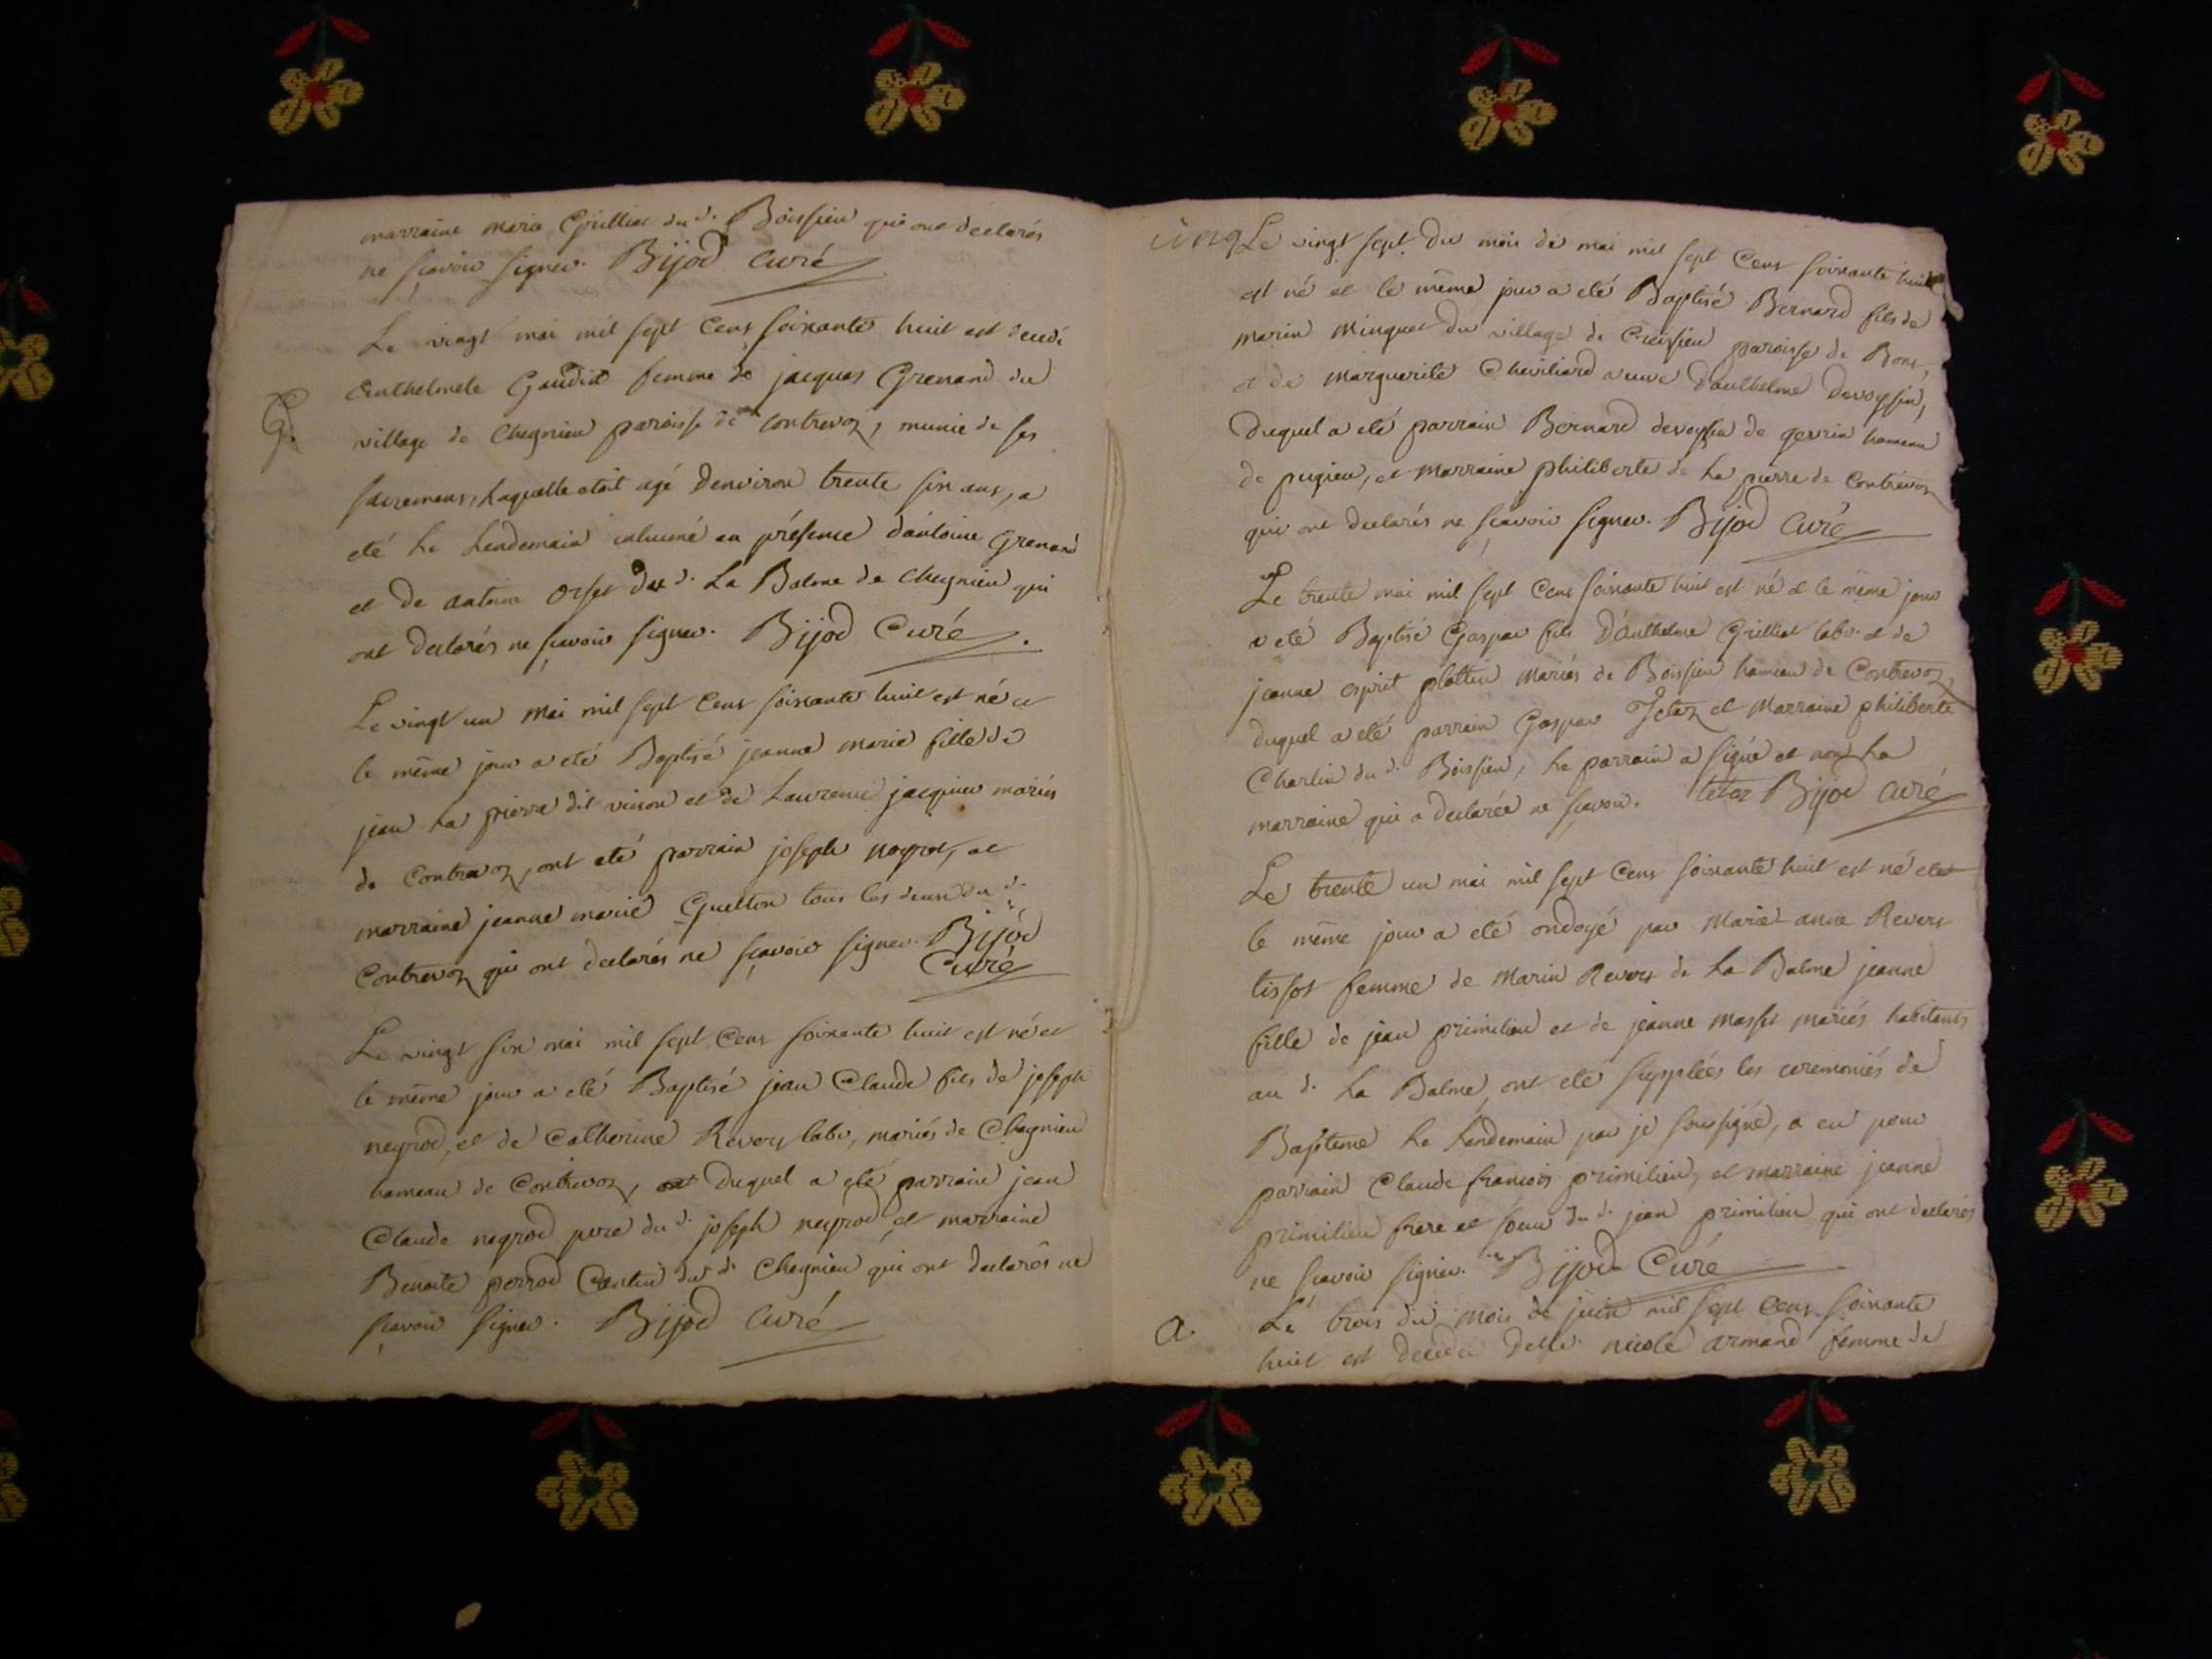 marraine marie Grilliet du d. Boissieu qui ont declarés
ne sçavoir signer. Bijod Curé
Le vingt mai mil sept Cens soixante huit est decedé
Anthelmete Gaudit femme de jacques Grenand du
G.
village de Chegnieu paroisse de Contrevoz, munie de ses
sacremens, Laquelle etoit agé denviron trente six ans, a
eté Le Lendemain inhumé en présence dantoine Grenand
et de antoine Orset du d. La Balme de Chegnieu qui
ont declarés ne sçavoir signer. Bijod Curé
Le vingt un Mai mil sept Cens soixante huit est né et
le même jour a eté Baptisé jeanne marie fille de
jean La pierre dit vinon et de Laurence jacquier mariés
de Contrevoz, ont eté parrain joseph neyrod, et
marraine jeanne marie Guetton tous les deux du d.
Contrevoz qui ont declarés ne sçavoir signer. Bijod
Curé
Le vingt six mai mil sept Cens soixante huit est né et
le même jour a eté Baptisé jean Claude fils de joseph
neyrod, et de Catherine Revers labr, mariés de Chegnieu
hameau de Contrevoz, duquel a eté parrain jean
Claude neyrod pere du d. joseph neyrod et marraine
Benoite perrod du d. Chegnieu qui ont declarés ne
sçavoir signer. Bijod Curé
cinq Le vingt sept du mois de mai mil sept Cens soixante huit
est né et le même jour a eté Baptisé Bernard fils de
marin Minguet du village de Creissieu paroisse de Bons,
et de Marguerite Cheviliard veuve d'anthelme devoyssin,
duquel a eté parrain Bernard devoyssin de gevrin hameau
de pugieu, et Marraine philiberte de La pierre de Contrevoz
qui ont declarés ne sçavoir signer. Bijod Curé
Le trente mai mil sept Cens soixante huit est né et le même jour
a eté Baptisé Gaspar fils d'Anthelme Grilliet labr. et de
jeanne esprit plottin Mariés de Boissieu hameau de Contrevoz,
duquel a eté parrain Gaspar Tetaz et Marraine philiberte
Charlin du d. Boissieu, Le parrain a signé et non La
marraine qui a declarée ne sçavoir. tetaz Bijod Curé
Le trente un mai mil sept Cens soixante huit est né et
le même jour a eté ondoyé par Marie anne Revers
tissot femme de Marin Revers de La Balme jeanne
fille de jean primilieu et de jeanne Masset mariés habitants
au d. La Balme, ont eté supplées les ceremoniés de
Bapteme Le Lendemain par je soussigné, a eu pour
parrain Claude francois primilieu, et marraine jeanne
primilieu frere et soeur du d. jean primilieu qui ont declarés
ne sçavoir signer. Bijod Curé
a. Le trois du mois de juin mil sept Cens soixante
huit est decedée delle. nicole armand femme de